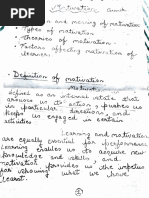 Motivation
and meaning of motivation
• Types of motivation
• Theories of motivation
• Factors affecting motivation of learner.
Definition of motivation
defined as an internal state that
arouses us to action, pushes us
in particular directions, and
keeps us engaged in certain
activities
Learning and motivation
are equally essential for performance
Learning enables us to acquire new
knowledge and skills and
motivation provides us the impetus
for showing what we have
learnt.